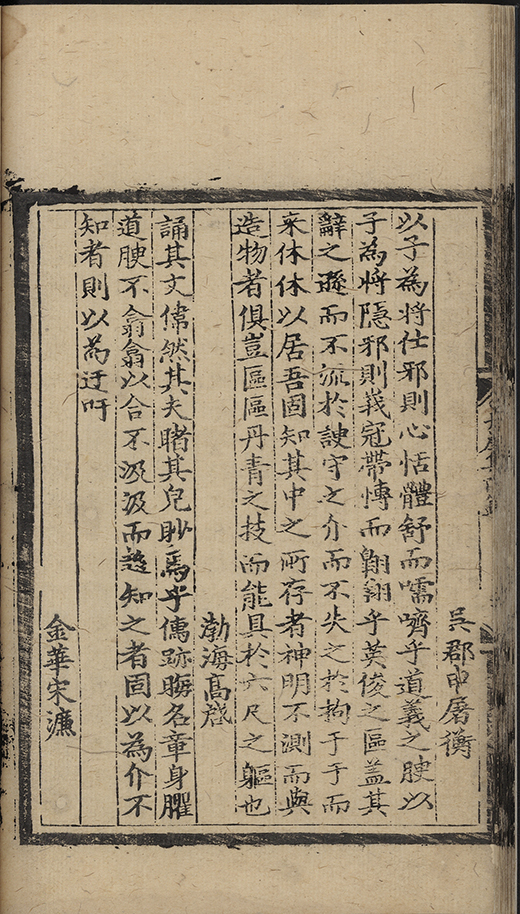 吳郡申屠衡
以子為將仕邪則心恬體舒而嚅嚌乎道義之腴以
子為將隱邪則峩冠帶慱而翺翔乎英俊之區盖其
辭之遜而不流於諛守之介而不失之於拘于于而
来休休以居吾固知其中之所存者神明不測而與
造物者俱豈區區丹青之技而能具於六尺之軀也
渤海高啟
誦其文偉然其夫睹其皃眇焉乎儒跡晦名章身臞
道腴不翕翕以合不汲汲而趨知之者固以為介不
知者則以為迂吁
金華宋濂